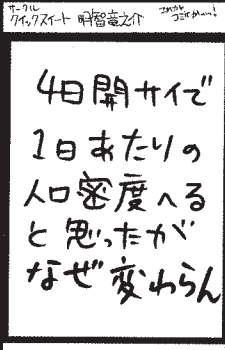 サークル
クイックスイート 明智竜之介
これがコミケかい!
4日開サイで
1日あたりの
人口密度へる
と思ったが
なぜ変わらん